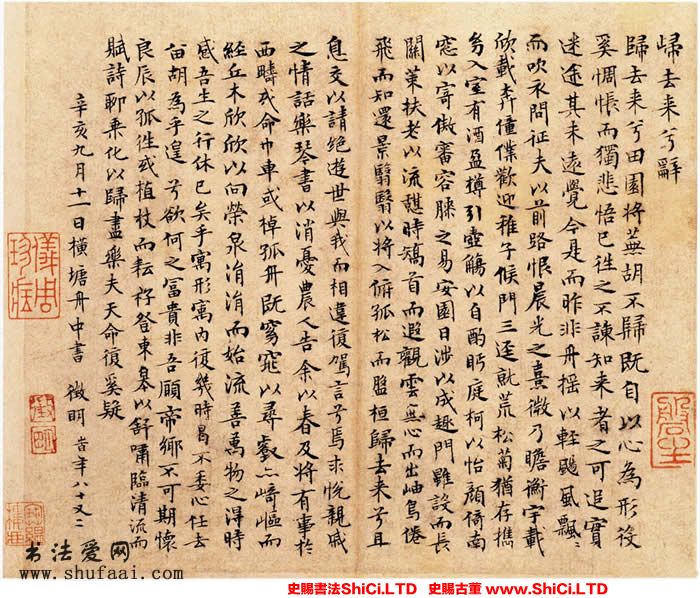 歸去来兮辭
歸去来兮田園将蕪胡不歸既自以心為形役
奚惆悵而獨悲悟已往之不諫知来者之可追實
迷途其未遠覺今是而昨非舟揺以輕颺風飄〻
而吹衣問征夫以前路恨晨光之熹微乃瞻衡宇載
欣載奔僮僕歡迎稚子候門三逕就荒松菊猶存攜
幼入室有酒盈樽引壺觴以自酌眄庭柯以怡顔倚南
窓以寄傲審容膝之易安園日涉以成趣門雖設而長
關策扶老以流憇時矯首而遐觀雲無心而出岫鳥倦
飛而知還景翳翳以将入撫孤松而盤桓歸去来兮且
息交以請絕遊世與我而相違復駕言兮焉求悅親戚
之情話樂琴書以消憂農人告余以春及将有事於
西疇或命巾車或棹孤舟既窈窕以尋壑亦崎嶇而
經丘木欣欣以向榮泉涓涓而始流善萬物之得時
感吾生之行休已矣乎寓形寓内復幾時曷不委心任去
留胡為乎遑兮欲何之富貴非吾願帝鄉不可期懷
良辰以孤往或植杖而耘耔登東皋以舒嘯臨清流而
賦詩聊乗化以歸盡樂夫天命復奚疑
辛亥九月十一日横塘舟中書 徴明 旹年八十又二
儀周珍藏
书法爱网
www.shufaai.com
史賜書法ShiCi.LTD 史賜古董 www.ShiCi.LTD